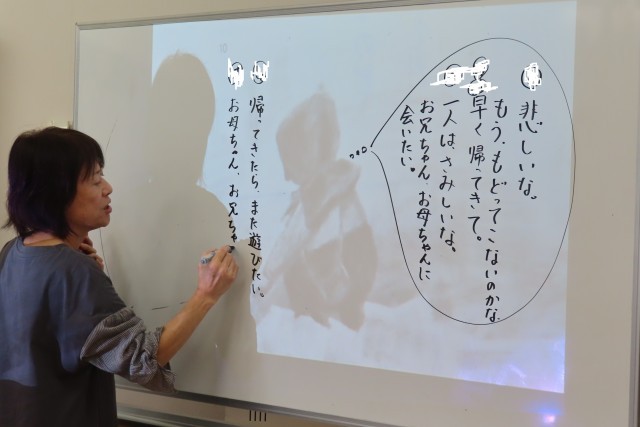 悲しいな。
もう、もどってこないのかな。
早く帰ってきて。
一人は、さみしいな。
お兄ちゃん、お母ちゃんに
会いたい。
帰ってきたら、また遊びたい。
お母ちゃん、お兄ちゃ